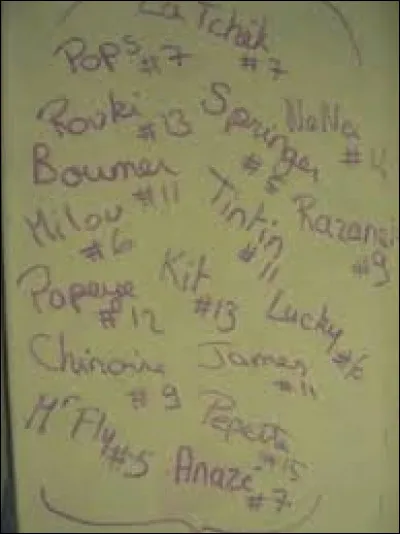 La Tchik #7
Pop's #7
Rouki #13
Springer #5
NaNa #4
Boumer #11
Milou #6
Tintin #11
#9
Popeye #12
Kit #13
Lucky #6
James #11
Mr Fly #5
Pepette #15
Anazé #7
#9